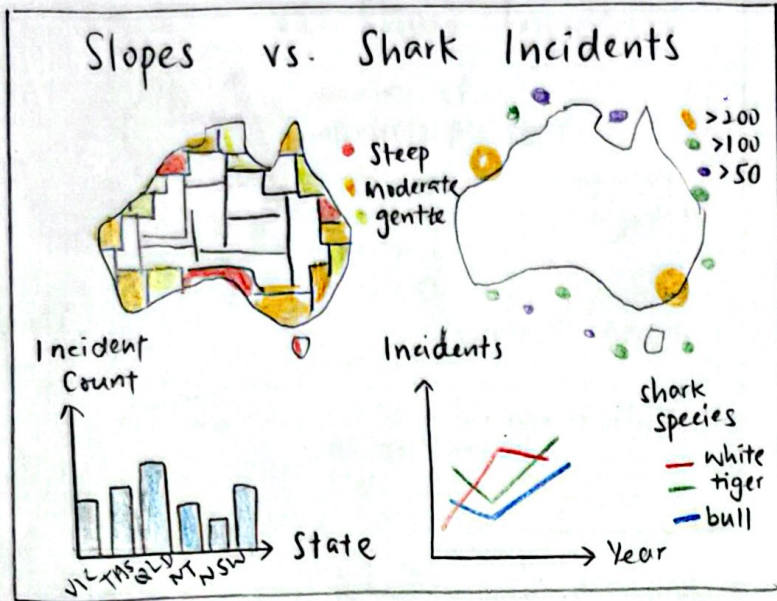 Slopes vs. Shark Incidents
Steep
moderate
gentle
>200
>100
>50
Incident
Count
VIC TAS QLD NT NSW
State
Incidents
Year
shark
species
white
tiger
bull